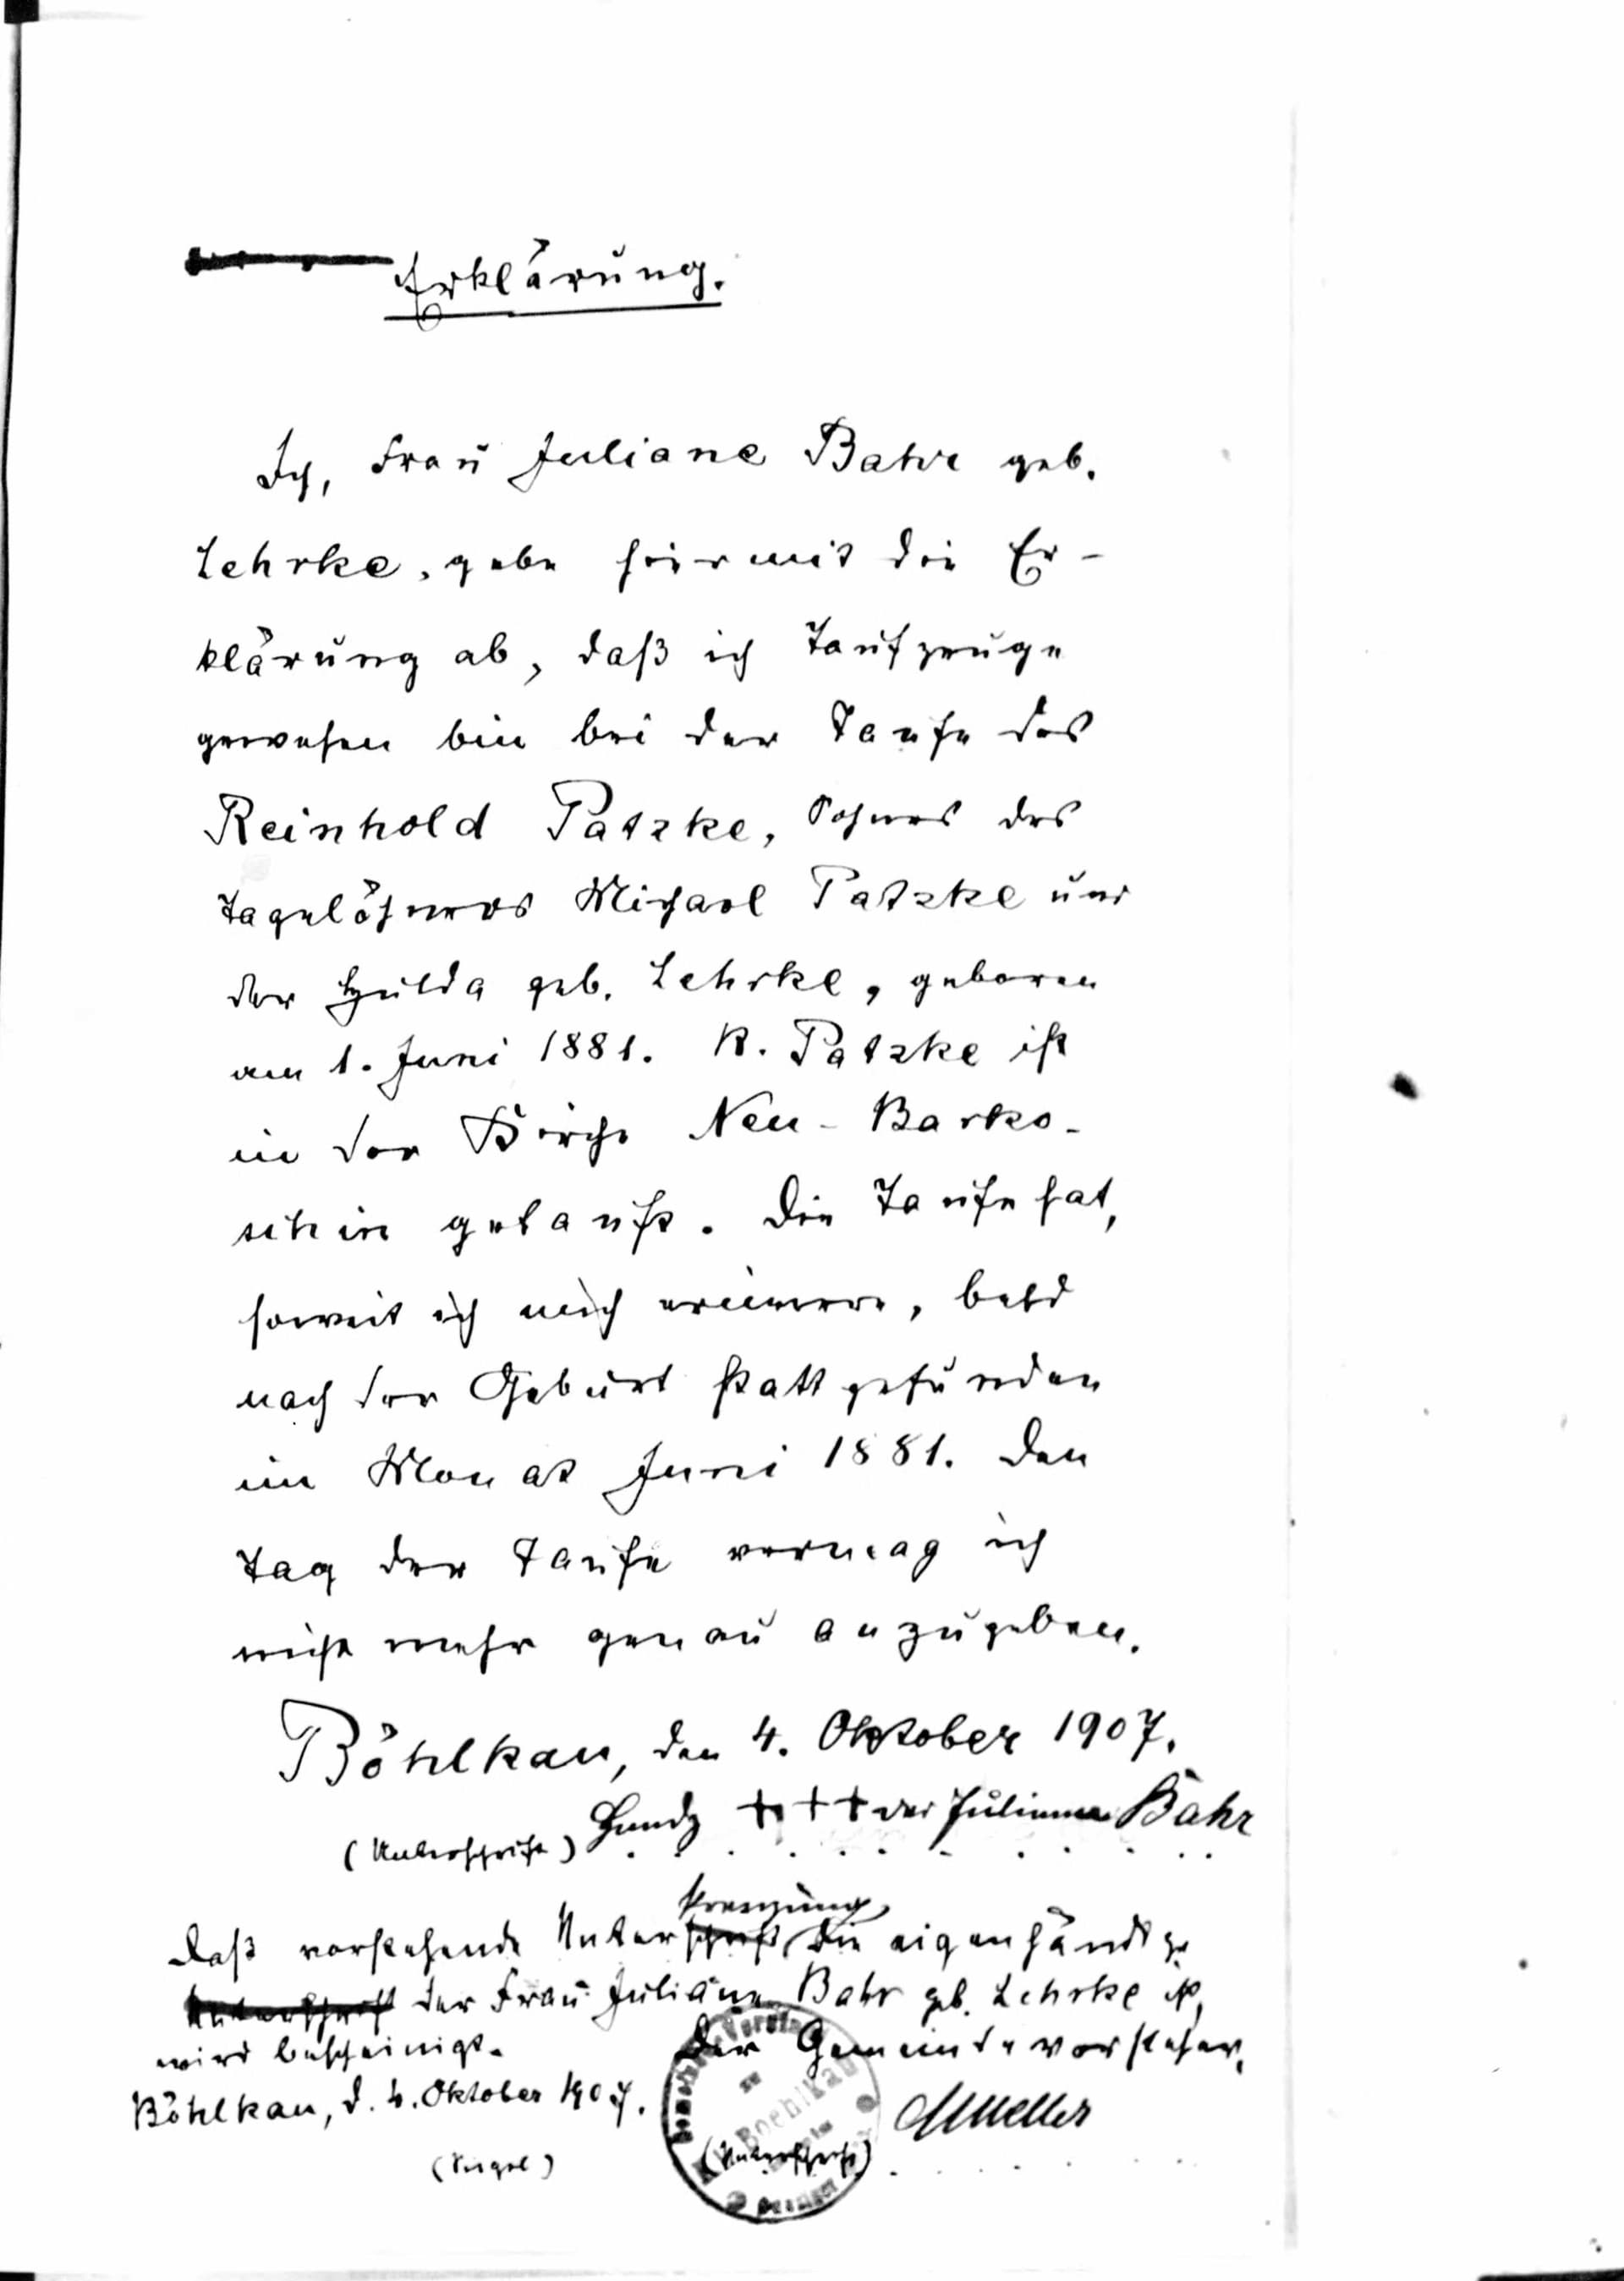 Erklärung.
Ich, Frau Juliane Bahr geb.
Lehrke, gebe hiermit die Er-
klärung ab, daß ich Taufzeuge
gewesen bin bei der Taufe des
Reinhold Patzke, Sohnes des
Tagelöhners Michael Patzke und
der Hulda geb. Lehrke, geboren
am 1. Juni 1881. R. Patzke ist
in der Kirche Neu-Barko-
schin getauft. Die Taufe hat,
soweit ich mich erinnere, bald
nach der Geburt stattgefunden
im Monat Juni 1881. Den
Tag der Taufe vermag ich
nicht mehr genau anzugeben.
Böhlkau, den 4. Oktober 1907.
Handz +++ der Juliane Bahr
(Unterschrift)
kreuzung
Daß vorstehende Unterschrift die eigenhändige
Unterschrift der Frau Juliane Bahr geb. Lehrke ist,
wird bescheinigt.
Der Gemeindevorsteher.
Böhlkau, d. 4. Oktober 1907.
Mueller
(Siegel)
(Unterschrift)
Boehlkau